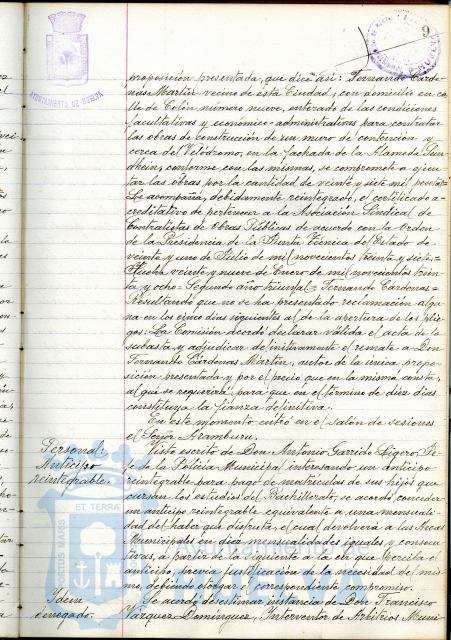 AYUNTAMIENTO DE HUELVA
9
proposición presentada, que dice así: Fernando Carde-
nas Martin vecino de ésta Ciudad, con domicilio en ca-
lle de Colón número nueve, enterado de las condiciones
facultativas y económico-administrativas para contratar
las obras de construcción de un muro de contención y
cerca del Velódromo, en la fachada de la Alameda Sun-
dheim, conforme con las mismas, se compromete a ejecu-
tar las obras por la cantidad de veinte y siete mil pesetas=
Se acompaña, debidamente reintegrado, el certificado a-
creditativo de pertenecer a la Asociación Sindical de
Contratistas de Obras Públicas de acuerdo con la Orden
de la Presidencia de la Junta Técnica del Estado de
veinte y uno de Julio de mil novecientos treinta y siete.=
Huelva veinte y nueve de Enero de mil novecientos trein-
ta y ocho=Segundo año triunfal= Fernando Cárdenas=
Resultando que no se ha presentado reclamación algu-
na en los cinco días siguientes al de la apertura de los plie-
gos: La Comisión acordó declarar válida el acta de la
subasta y adjudicar definitivamente el remate a Don
Fernando Cárdenas Martin, autor de la única propo-
sición presentada y por el precio que en la misma consta,
al que se requerirá para que en el término de diez días
constituya la fianza definitiva.
En este momento entró en el salón de sesiones
el Señor Aramburu.
Personal:
Anticipo
reintegrable.
Visto escrito de Don Antonio Garrido Ligero, Je-
fe de la Policía Municipal interesando un anticipo
reintegrable para pago de matrículas de sus hijos que
cursan los estudios del Bachillerato, se acordó conceder
un anticipo reintegrable equivalente a una mensuali-
dad del haber que disfruta, el cual devolverá a las Arcas
Municipales en diez mensualidades iguales y consecu-
tivas, a partir de la siguiente a la en que perciba el
anticipo, previa justificación de la necesidad del mis-
mo, debiendo otorgar el correspondiente compromiso.
Idem
denegado.
Se acordó desestimar instancia de Don Francisco
Vázquez Domínguez, Interventor de Arbitrios Muni
PORTUS MARIS
ET TERRA